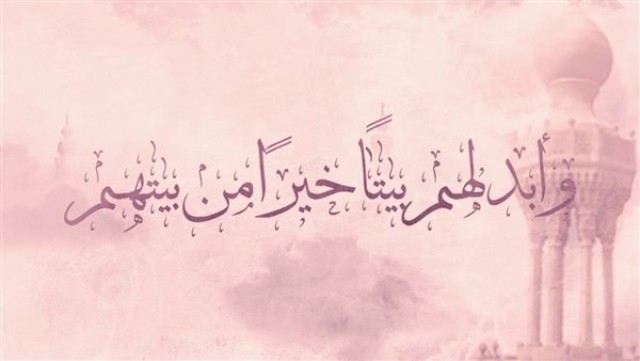 وأبدلهم بيتًا خيرًا من بيتهم